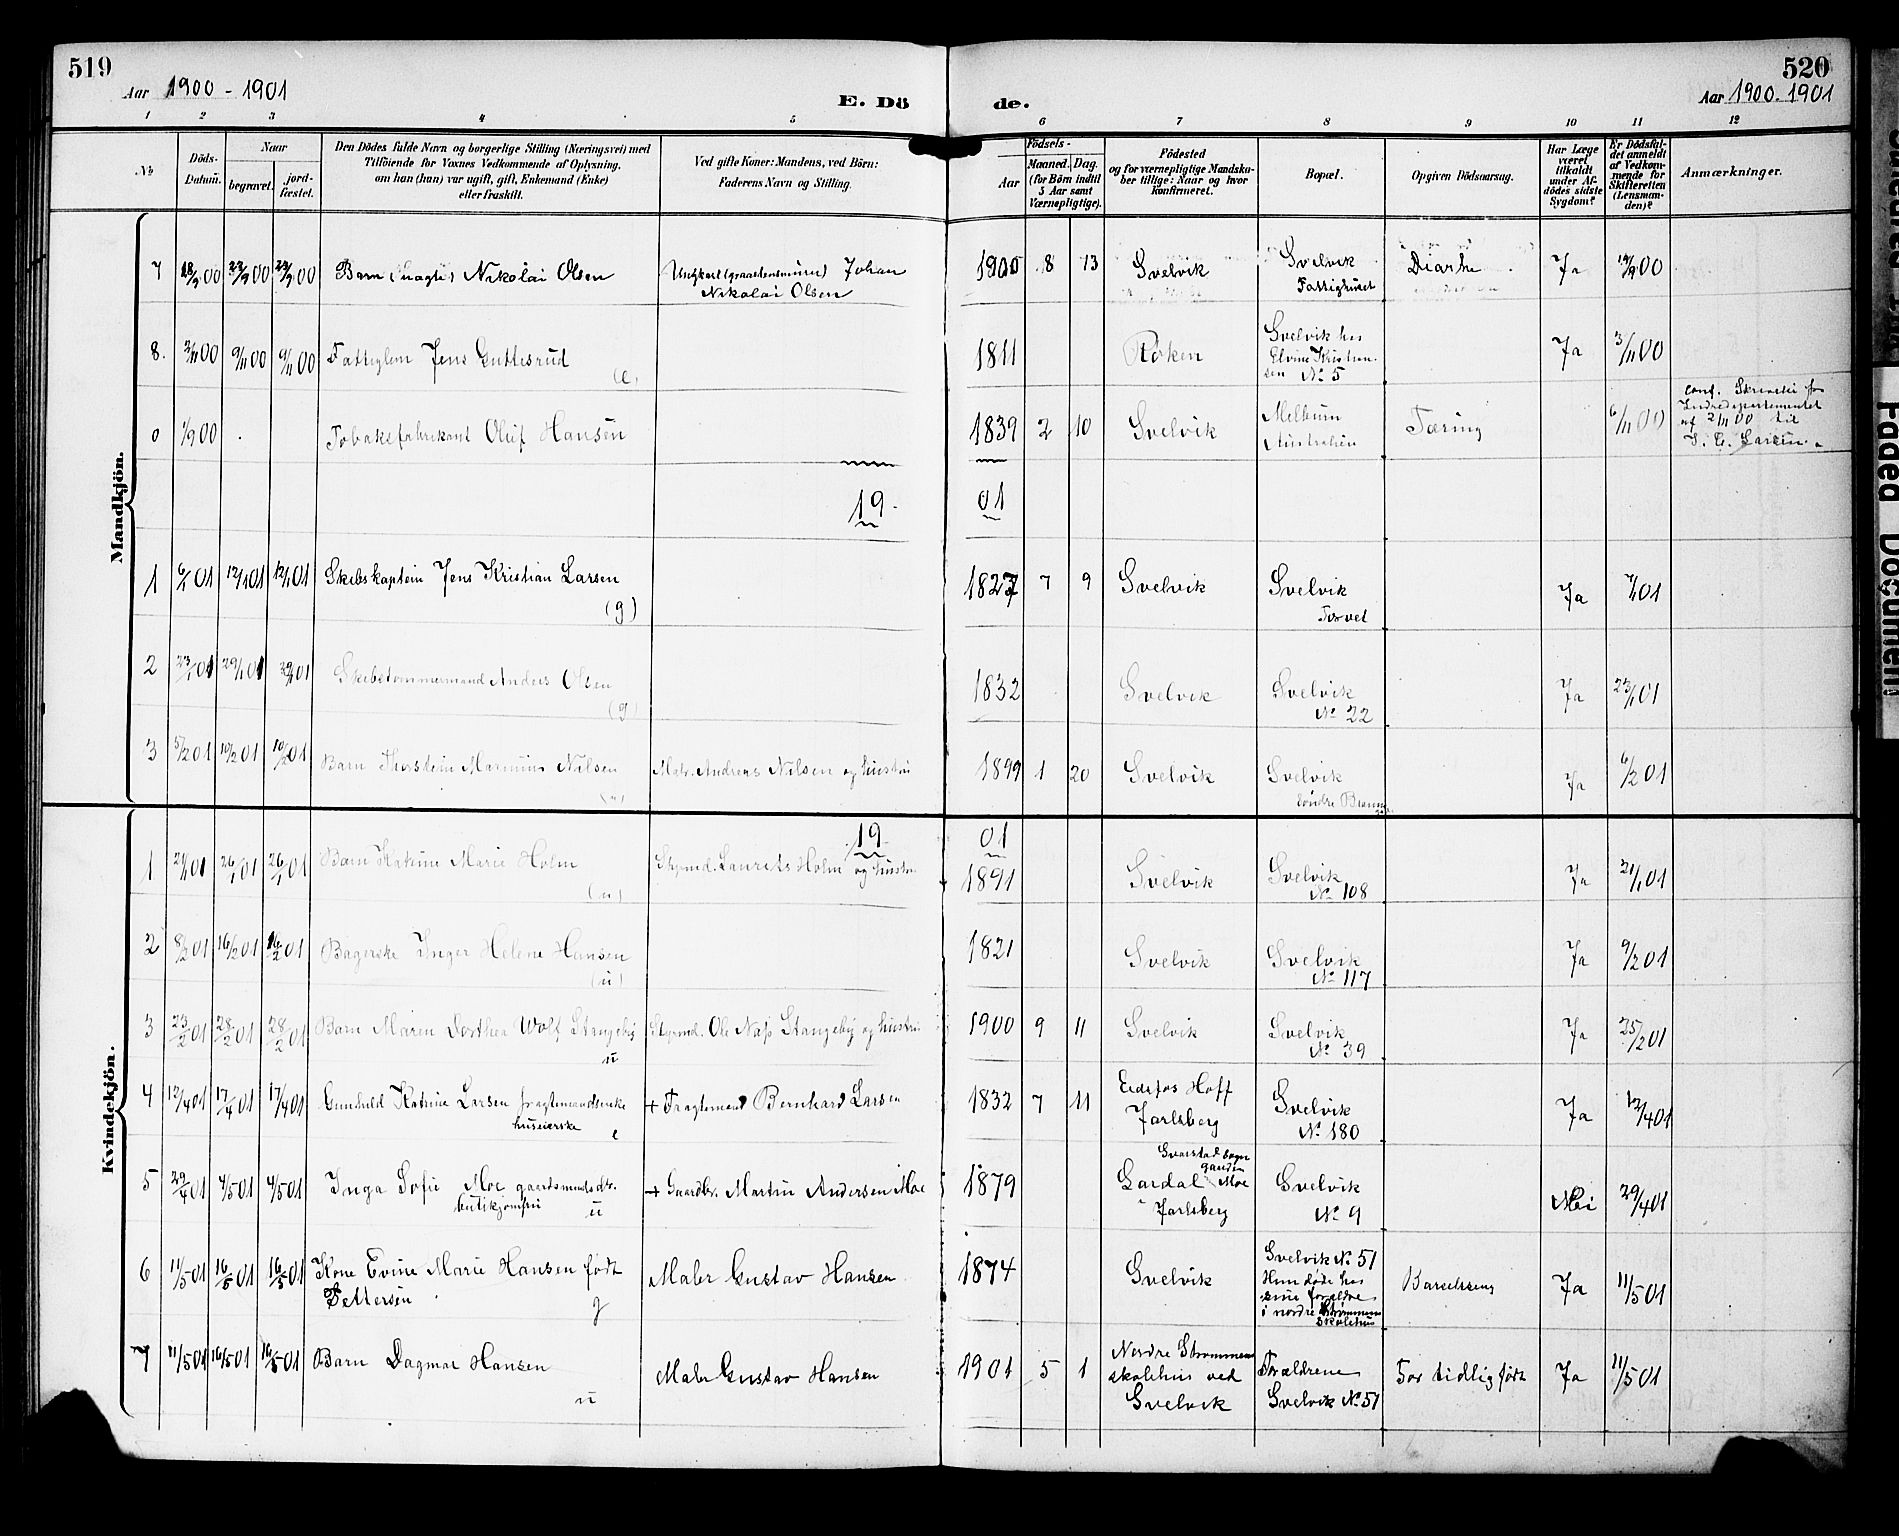 519
Aar 1900 - 1901
E. Dö
de.
520
Aar 1900 - 1901
1 2 3 4 5 6 7 8 9 10 11 12
No
Döds-
Datum.
Naar
begravet.
jord-
fæstet.
Den Dödes fulde Navn og borgerlige Stilling (Næringsvei) med
Tilföiende for Voxnes Vedkommende af Oplysning,
om han (hun) var ugift, gift, Enkemand (Enke)
eller fraskilt.
Ved gifte Koner: Mandens, ved Börn:
Faderens Navn og Stilling.
Födsels-
Aar
Maaned. Dag.
(for Börn indtil
5 Aar samt
Værnepligtige).
Födested
og for værnepligtige Mandska-
ber tillige: Naar og hvor
konfirmeret.
Bopæl.
Opgiven Dödsaarsag.
Har Læge
været
tilkaldt
under Af-
dödes sidste
Sygdom?
Er Dödsfal-
det anmeldt
af Vedkom-
mende for
Skifteretten
(Lensman-
den)?
Anmærkninger.
Mandkjön.
7 18/9 00 23/9 00 23/9 00 Barn Nikolai Olsen
Ungkarl Johan
Nikolai Olsen
1900 8 13 Svelvik Svelvik
Fattighuset
Ja 19/9 00
8. 3/11 00 9/11 00 9/11 00 Fattiglem Jens Guttesrud
(e)
1811 Röken Svelvik hos
Elvine Kristian-
sen No 5
Ja 3/11 00
0 1/9 00 Tobaksfabrikant Oluf Hansen
1839 2 10 Svelvik Melburn
Australien
Tæring 6/11 00
conf. Skrivelse fra
Indredepartementet
af 2/11 00 til
Larsen.
19 01
1 6/1 01 12/1 01 12/1 01 Skibskaptein Jens Kristian Larsen
(g)
1827 7 9 Svelvik Svelvik
Torvet
Ja 7/1 01
2 23/1 01 29/1 01 29/1 01 Skibstømmermand Anders Olsen
(g)
1832 Svelvik Svelvik
No 22
Ja 23/1 01
3 5/2 01 10/2 01 10/2 01 Barn Thorstein Marinius Nilsen
Matr. Andreas Nilsen og hustru
1899 1 20 Svelvik Svelvik
Søndre
Ja 6/2 01
Kvindekjön.
19 01
1 21/1 01 26/1 01 26/1 01 Barn Katrine Marie Holm
(u)
Laurits Holm og hustru
1891 Svelvik Svelvik
No 108
Ja 21/1 01
2 8/2 01 16/2 01 16/2 01 Bagerske Inger Helene Hansen
(u)
1821 Svelvik Svelvik
No 117
Ja 9/2 01
3 23/2 01 28/2 01 28/2 01 Barn Maren Dorthea Wolf Stangeby
u
Ole Stangeby og hustru
1900 9 11 Svelvik Svelvik
No 39
Ja 25/2 01
4 12/4 01 17/4 01 17/4 01 Gunhild Katrine Larsen fragtemandsenke
huseierske e
+ Fragtemand Bernhard Larsen
1832 7 11 Eidsfos Hoff
Jarlsberg
Svelvik
No 180
Ja 12/4 01
5 29/4 01 4/5 01 4/5 01 Inga Sofie Moe gaardmandsdtr.
butikjomfru u
+ Gaardbr. Martin Andersen Moe
1879 Svarstad Sogn
gaarden
Lardal Moe
Jarlsberg
Svelvik
No 9
Nei 29/4 01
6 11/5 01 16/5 01 16/5 01 Kone Evine Marie Hansen født
Pettersen
g
Maler Gustav Hansen
1874 Svelvik Svelvik No 51
Hun døde hos
sine forældre
i nordre Strømmens
skolehus
Barselseng Ja 11/5 01
7 11/5 01 16/5 01 16/5 01 Barn Dagmar Hansen
u
Maler Gustav Hansen
1901 5 1 Nordre Strømmens
skolehus ved
Svelvik
Forældrene
Svelvik No 51
For tidlig født Ja 11/5 01
Faded Document